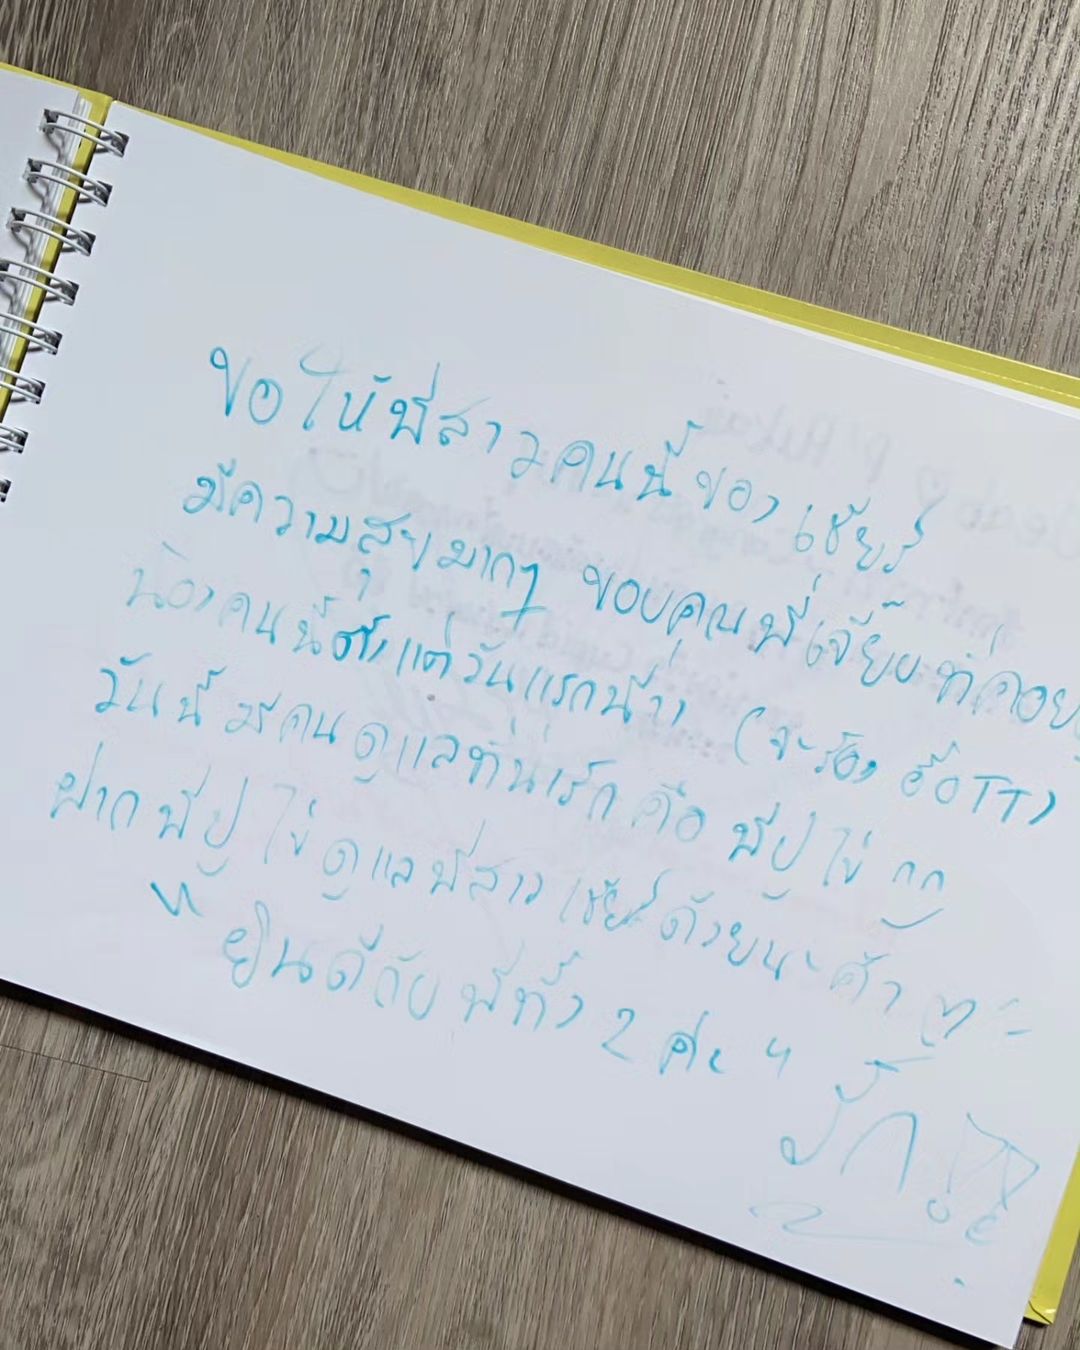 ขอให้พี่สาวคนนี้ของเชียร์
มีความสุขมากๆ ขอบคุณพี่เจี๊ยบที่คอย
น้องคนนี้ตั้งแต่วันแรกนี้ (จะร้อง อื้อTT)
วันนี้มีคนดูแลที่น่ารัก คือ พี่ปูไข่ กก
ฝากพี่ปูไข่ดูแลพี่สาวเชียร์ด้วยนะค้า
"ยินดีกับพี่ทั้ง 2 ค่ะ"
รัก